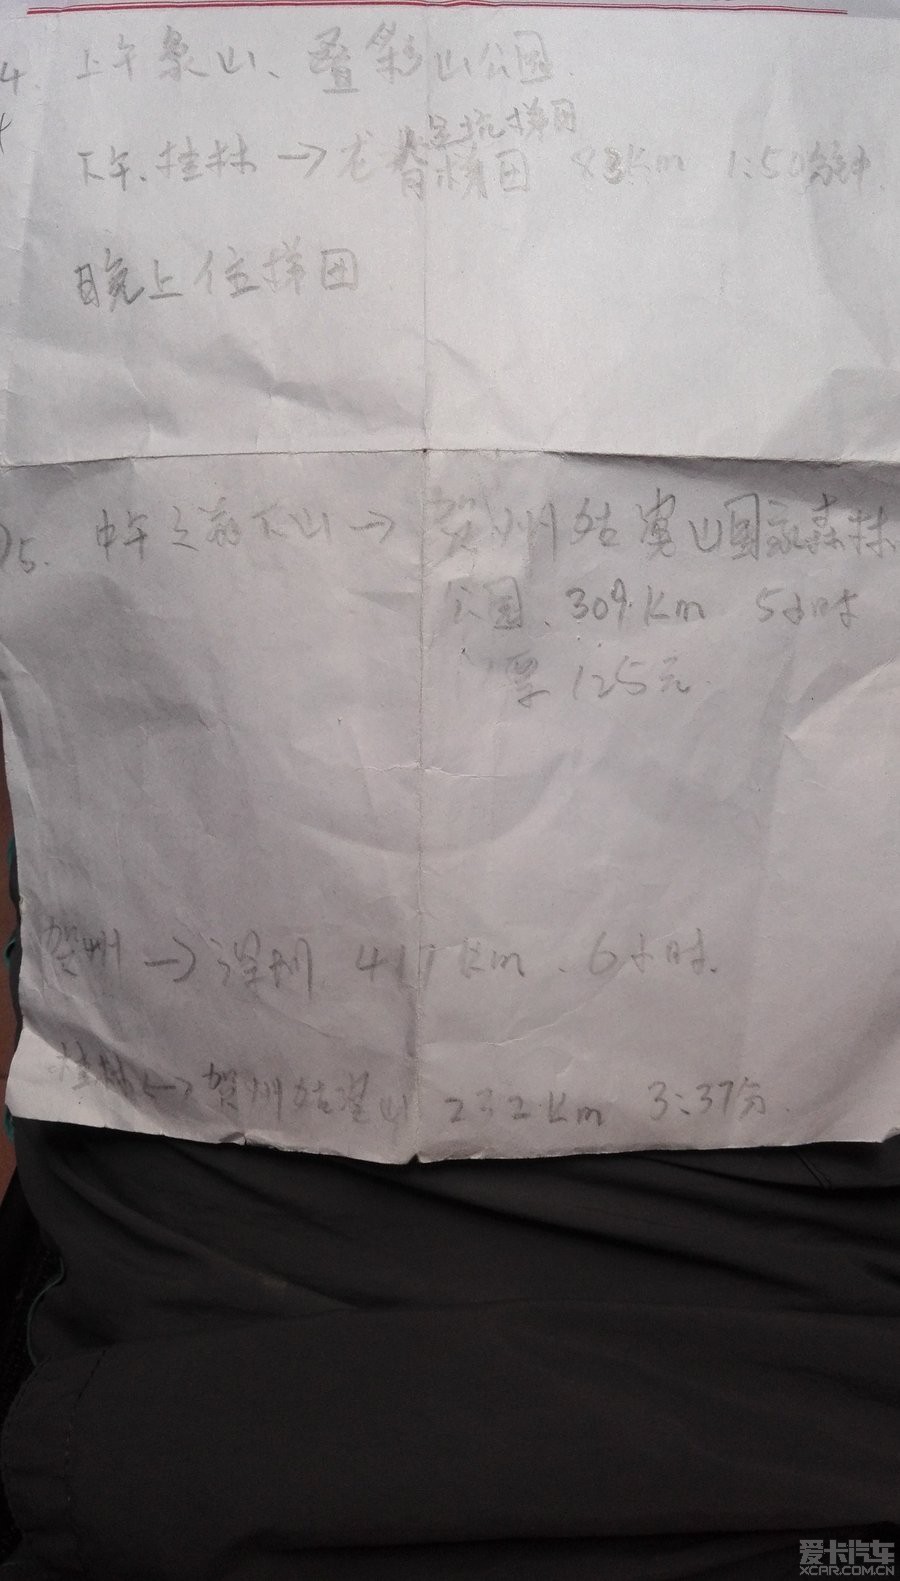 4. 上午象山、叠彩山公园.
坑梯田
下午、桂林→龙脊梯田 83Km 1:50分钟.
晚上住梯田
5. 中午之前下山→贺州姑婆山国家森林
公园、309.Km 5小时
门票125元.
贺州→深圳 Km、6小时.
桂林→贺州姑婆山 232Km 3:37分.
爱卡汽车
XCAR.COM.CN